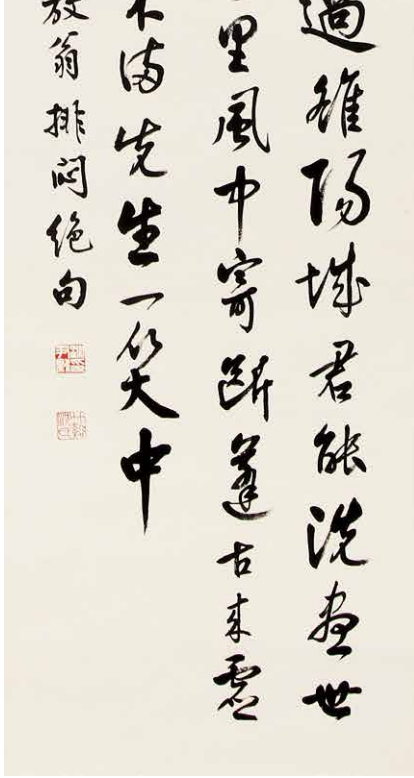 過雒陽城君能洗盡世
里風中寄斷蓬古来虛
不滿先生一笑中
放翁排悶絕句